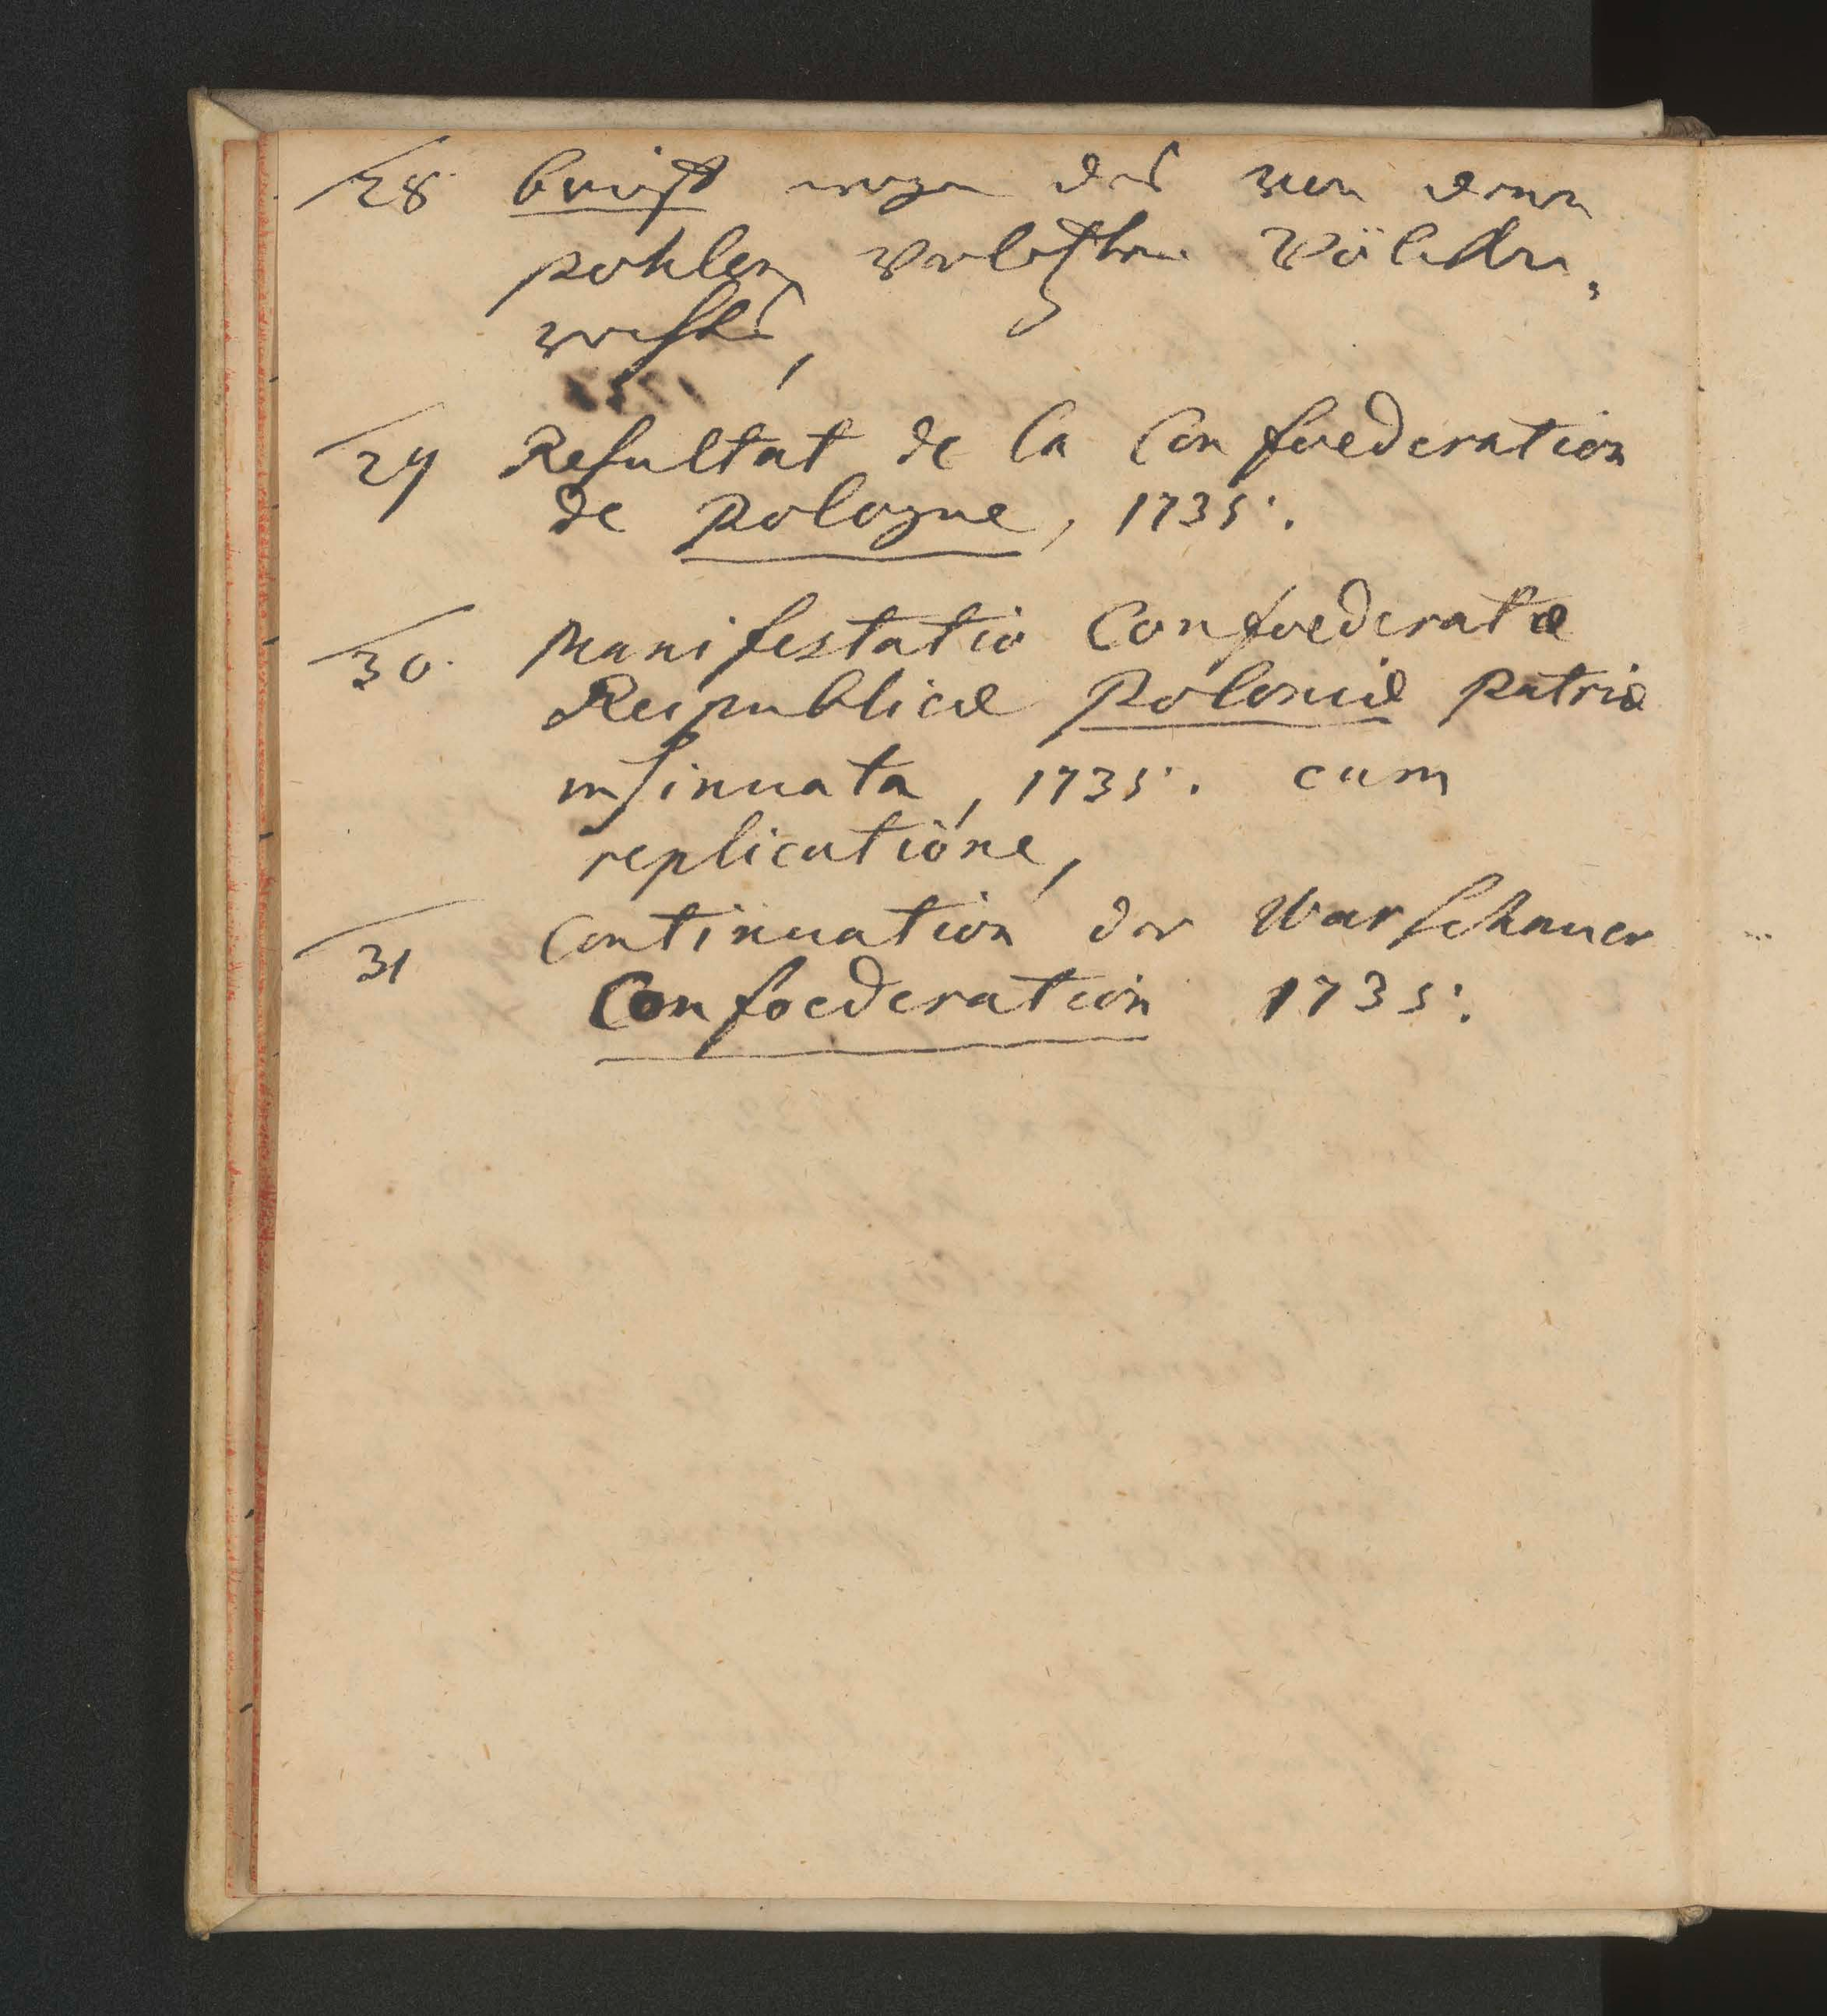 28 brieff wegen des von denen
pohlen verletzten Völcker,
rechts,
29 Resultat de la Confoederation
de Pologne, 1735.
30. Manifestatio Confoederatæ
Reipublicæ Poloniæ patriæ
insinuata, 1735. cum
replicatione,
31 Continuation der Warschauer
Confoederation 1735.